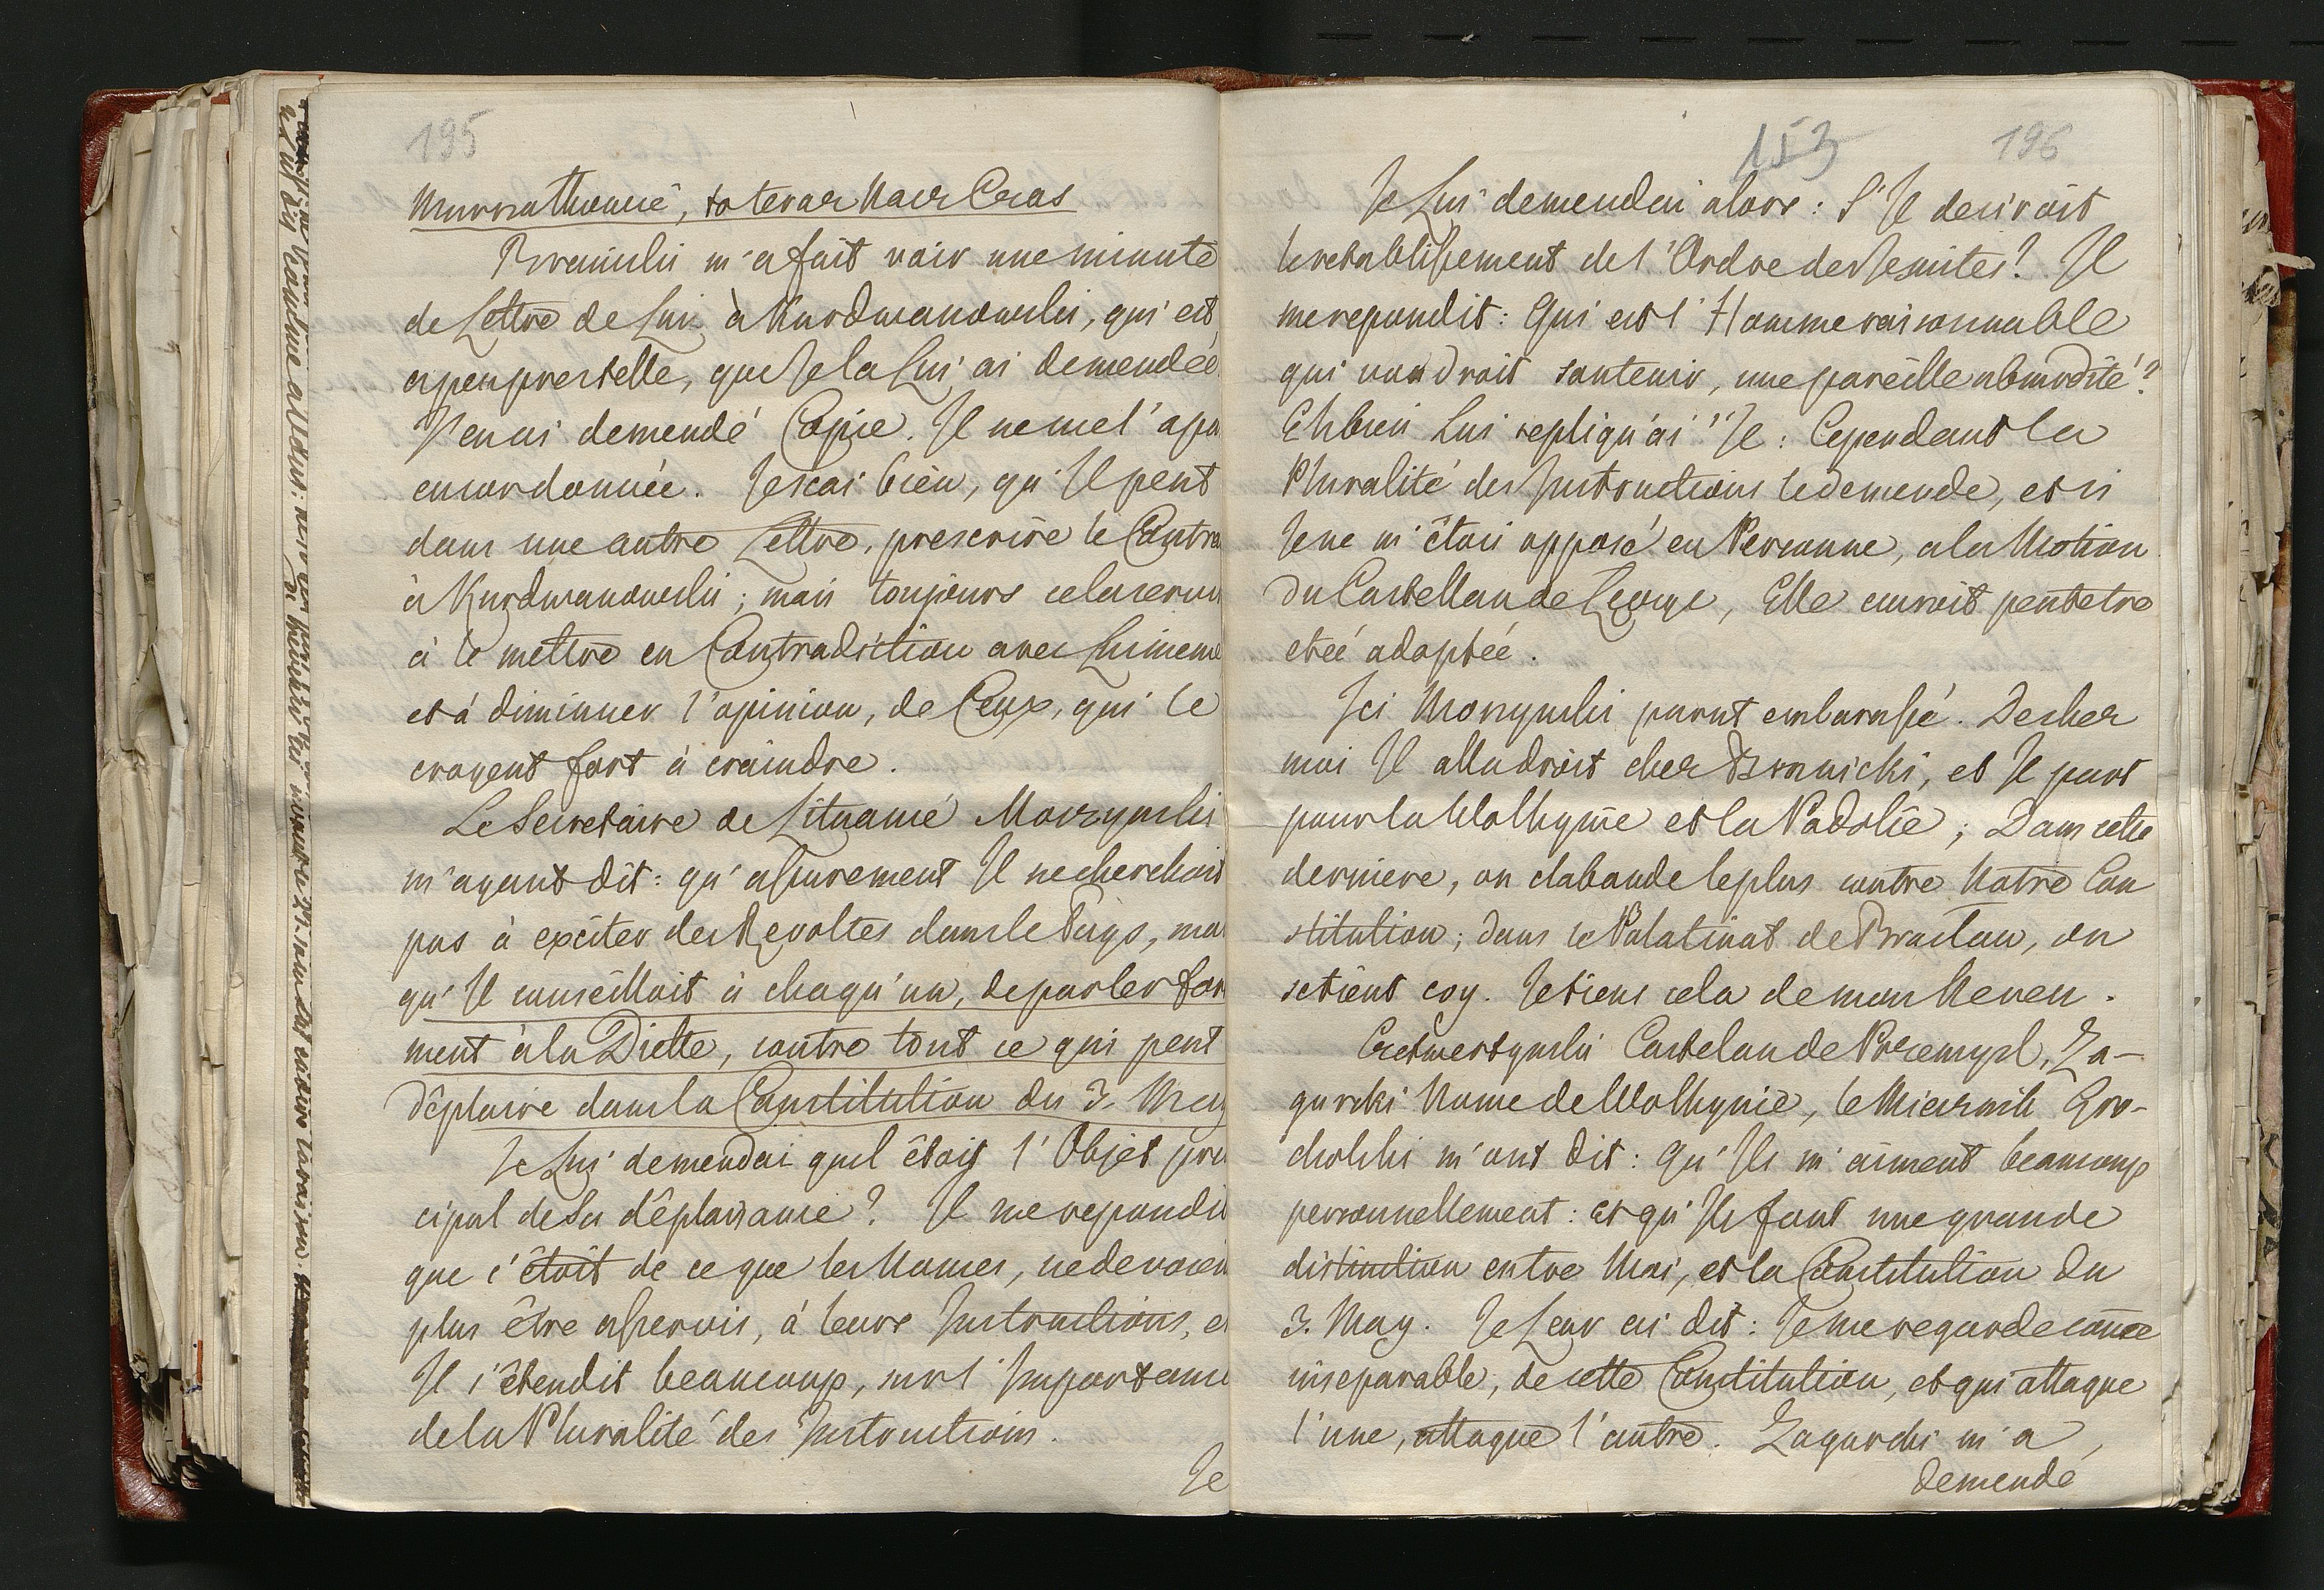 195
Murrathowié, to teraz Nasz Czas
Braniski m'a fait voir une minute
de Lettre de Lui à Kurdwanowski, qui est
apeupres telle, que Je la Lui ai demendée
J'en ai demendé Copie. Il ne me l'a pa
encor donnée. Je scai bien, qu'Il peut
dans une autre Lettre, prescrire le Contra
à Kurdwanowski; mais toujours cela servi
à le mettre en Contradiction avec Luimeme
et à diminuer l'opinion, de Ceux, qui le
croyent fort à craindre.
Le Secretaire de Lituanie Morzynski
m'ayant dit: qu'assurement Il ne cherchoit
pas à exciter des Revoltes dans le Pays, ma
qu'Il conseilloit à chaqu'un, de parler for
ment à la Diette, contre tout ce qui peut
déplaire dans la Constitution du 3. May
Je Lui demendai quel étoit l'Objet prin
cipal de Sa déplaisance? Il me repondit
que c'étoit de ce que les Nonces, ne devoien
plus être asservis, à leurs Instructions, e
Il s'étendit beaucoup, sur l'Importance
de la Pluralité des Instructions.
Je
153
196
Je Lui demendai alors: S'Il desiroit
le retablissement de l'Ordre des Jesuites? Il
me repondit: Qui est l'Homme raisonnable
qui voudroit soutenir, une pareille absurdité?
Eh bien Lui repliqu'ai Je: Cependant la
Pluralité des Instructions le demende, et si
Je ne m'étois opposé en Personne, a la Motion
du Castellan de Leczyc, Elle auroit peutetre
etée adoptée.
Ici Morzynski parut embarassé. De chez
moi Il alla droit chez Branicki, et Il part
pour la Wolhynie et la Podolie; Dans cette
derniere, on clabaude le plus contre Notre Con
stitution; dans le Palatinat de Braclau, on
se tient coy. Je tiens cela de mon Neveu.
Czetwertynski Castelan de Przemysl, Za-
gurski Nonce de Wolhynie, le Miecznik Gro-
cholski m'ont dit: Qu'Ils m'aiment beaucoup
personnellement: et qu'Ils font une grande
distinction entre Moi, et la Constitution du
3. May. Je Leur ai dit: Je me regarde come
inseparable, de cette Constitution, et qui attaque
l'une, attaque l'autre. Zagurski m'a
demendé